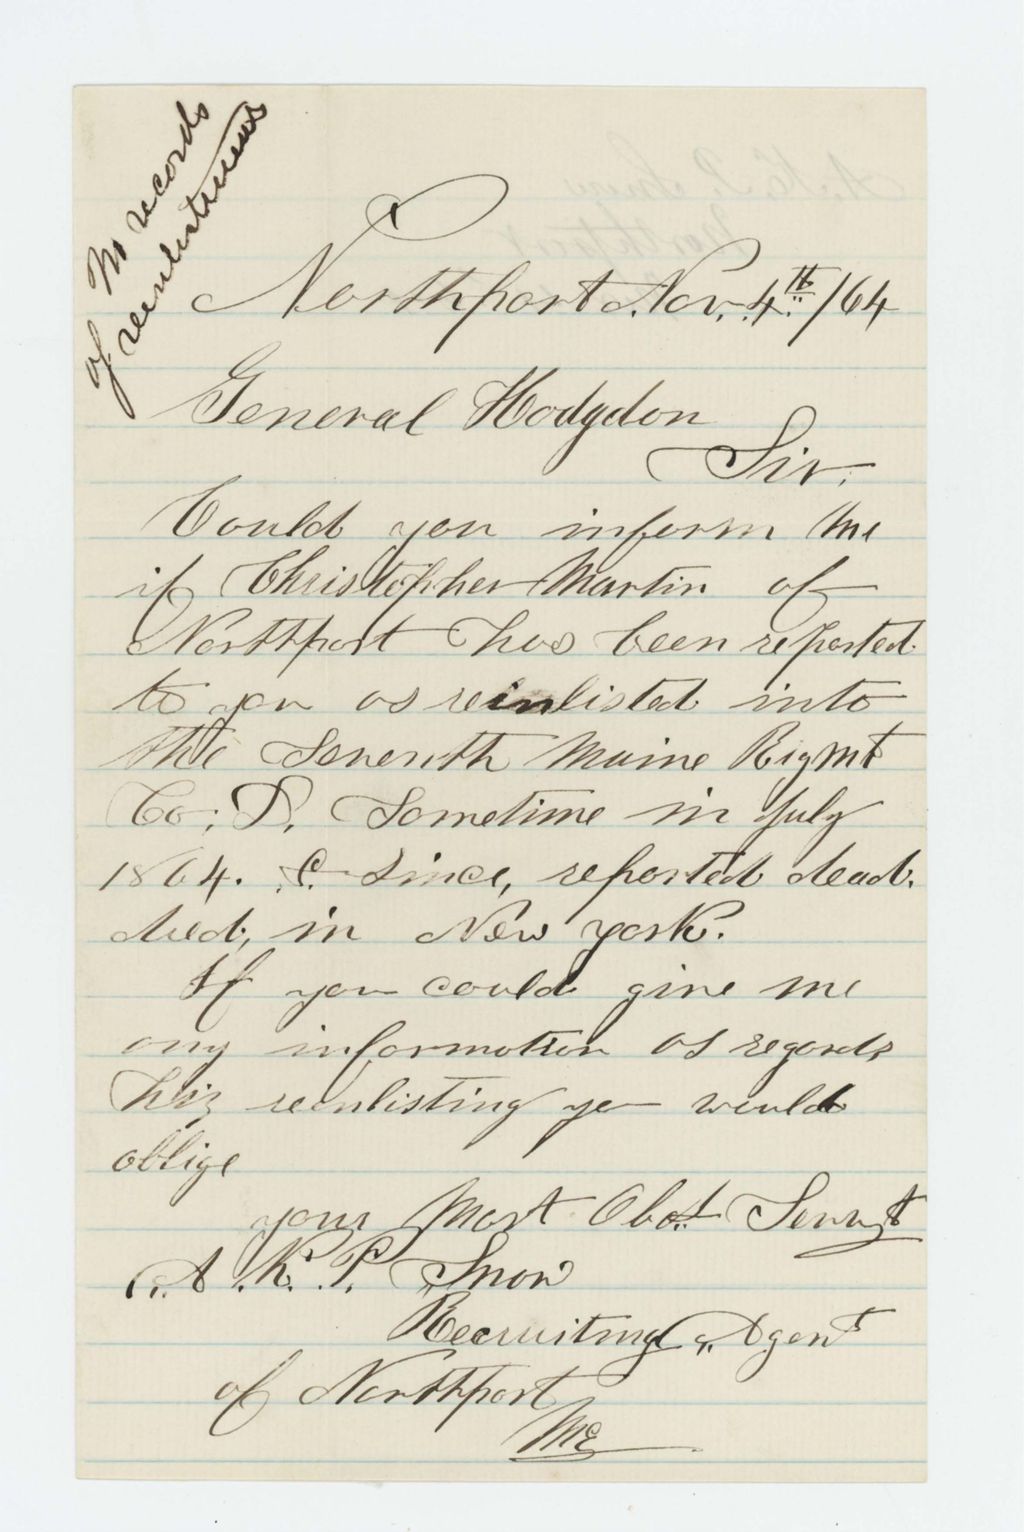 No records
of reenlistment
Northport Nov. 4th /64
General Hodgdon
Sir.
Could you inform me
if Christopher Martin of
Northport has been reported
to you as reinlisted into
the Seventh Maine Rigmt
Co, D, Sometime in July
1864. & Since, reported dead.
died, in New york.
If you could give me
any information as regards
his reenlisting yo would
oblige
your Most Obet. Servt
A. K. P. Snow
Recruiting Agent
of Northport
Me